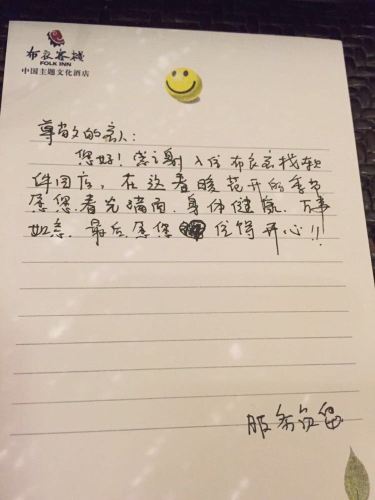 布衣客栈
FOLK INN
中国主题文化酒店
尊敬的客人:
您好!感谢入住布衣客栈软
件园店,在这春暖花开的季节
愿您春光满面.身体健康.万事
如意.最后愿您住得开心!!
服务员留